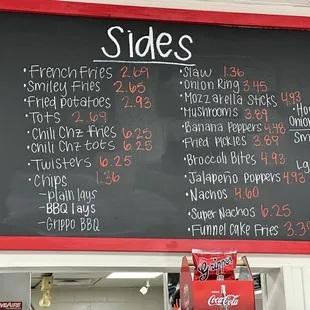 Sides
French Fries 2.69
Smiley Fries 2.65
Fried Potatoes 2.93
Tots 2.69
Chili Chz fries 6.25
Chili Chz tots 6.25
Twisters 6.25
Chips 1.36
-plain lays
-BBQ lays
-Grippo BBQ
Slaw 1.36
Onion Ring 3.45
Mozzarella Sticks 4.93
Mushrooms 3.89
Banana Peppers 4.48
Fried Pickles 3.89
Broccoli Bites 4.93
Jalapeño Poppers 4.93
Nachos 4.60
Super Nachos 6.25
Funnel Cake Fries 3.39
Ho
Onion
Sm
Lg
Grippo's
Coca-Cola